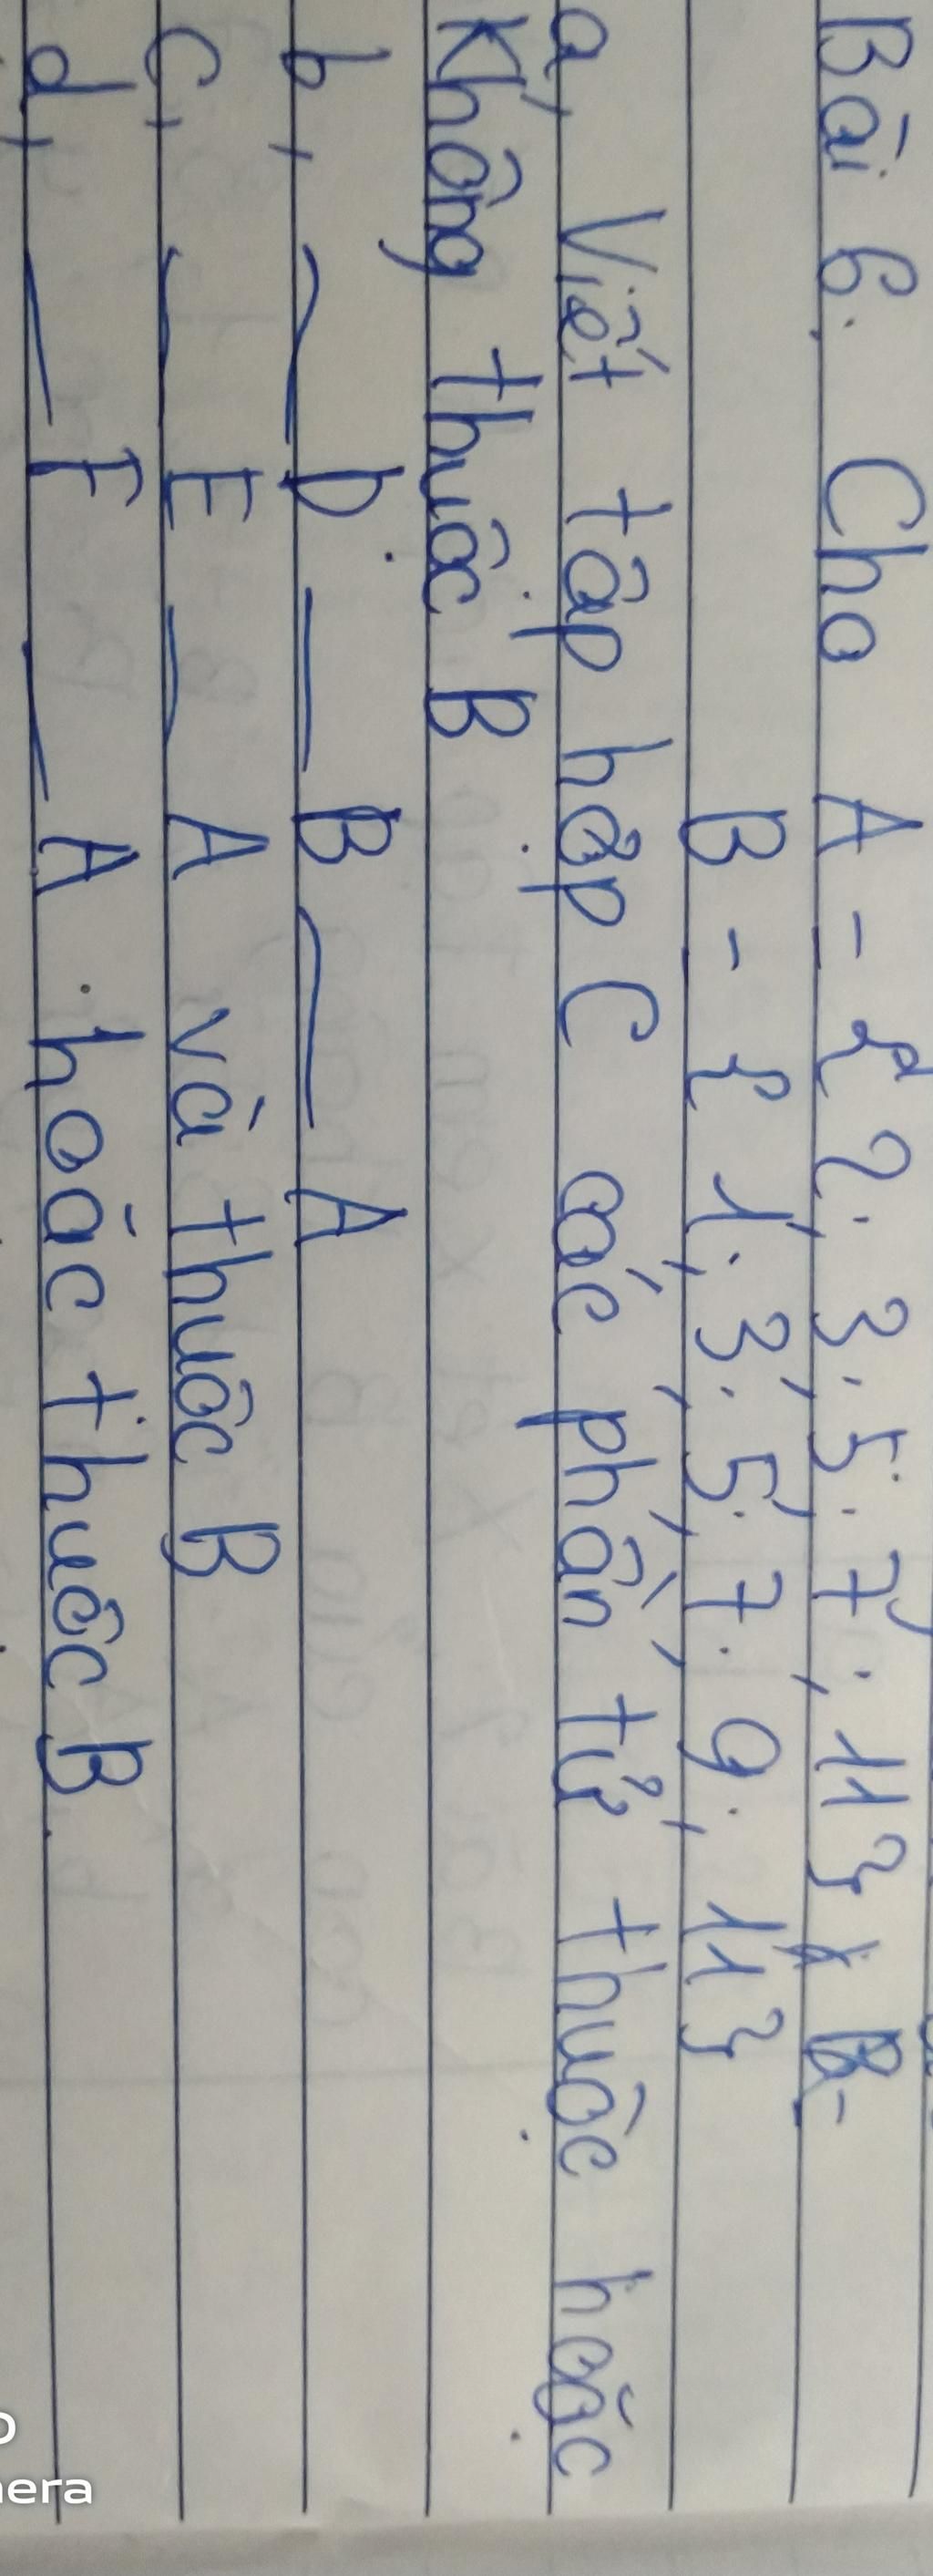 Bài 6. Cho A = { 2; 3; 5; 7; 11}
B = { 1; 3; 5; 7; 9; 11}
a, Viết tập hợp C các phần tử thuộc hoặc
Không thuộc B
b, — D — B — A
c, — E — A và thuộc B
d, — F — A hoặc thuộc B